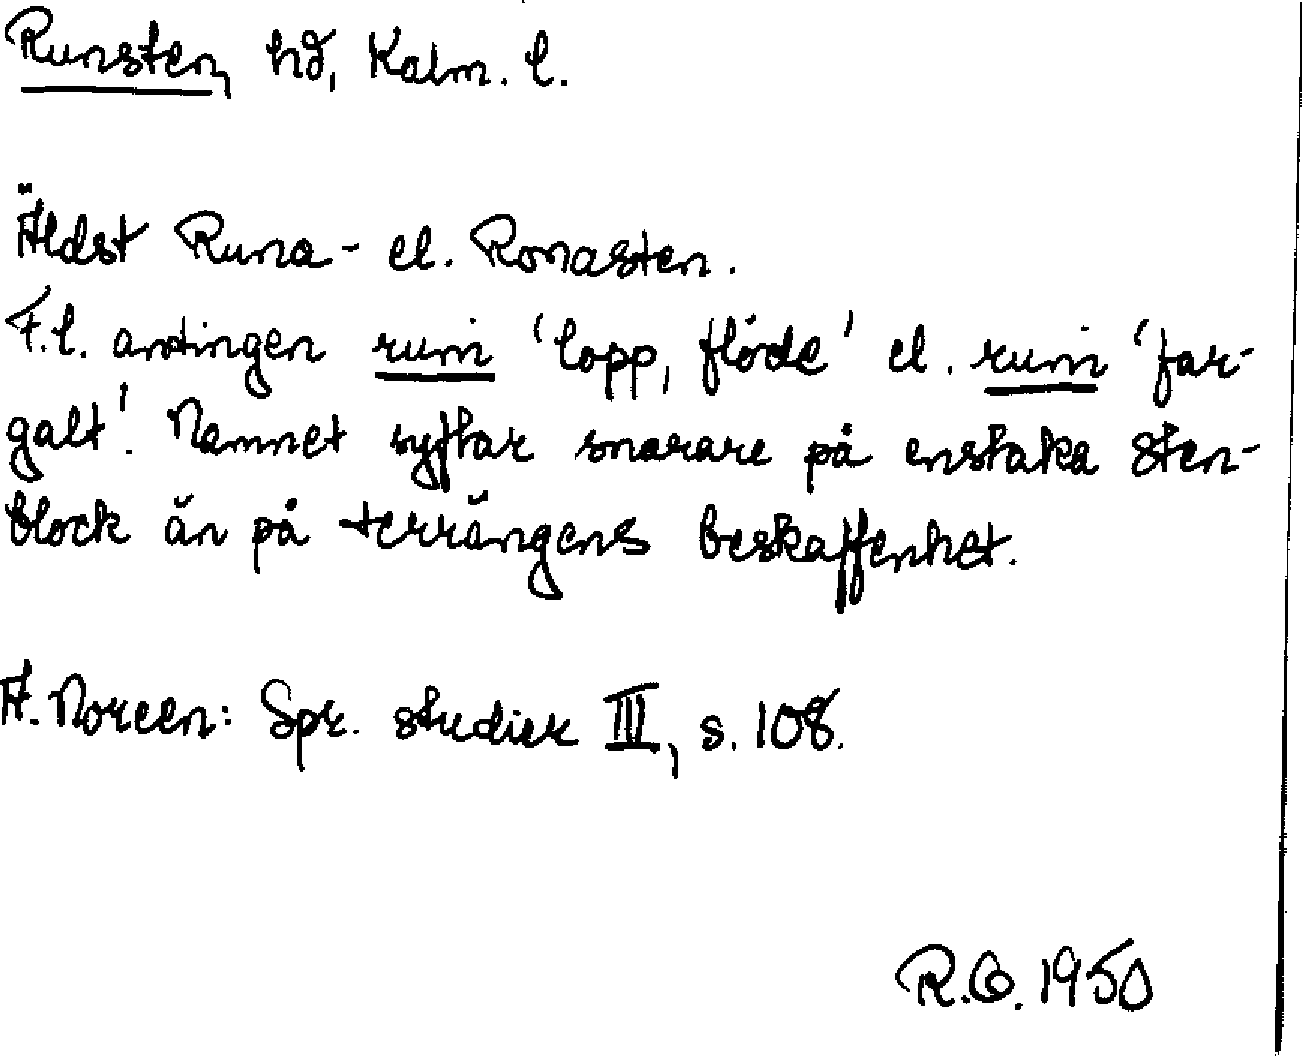 Runsten, hd, Kalm. l.
Äldst Runa- el. Ronasten.
F.l. antingen runi 'lopp, flöde' el. runi 'far-
galt'. Namnet syftar snarare på enstaka sten-
block än på terrängens beskaffenhet.
A. Noreen: Spr. studier III, s. 108.
R.O. 1950